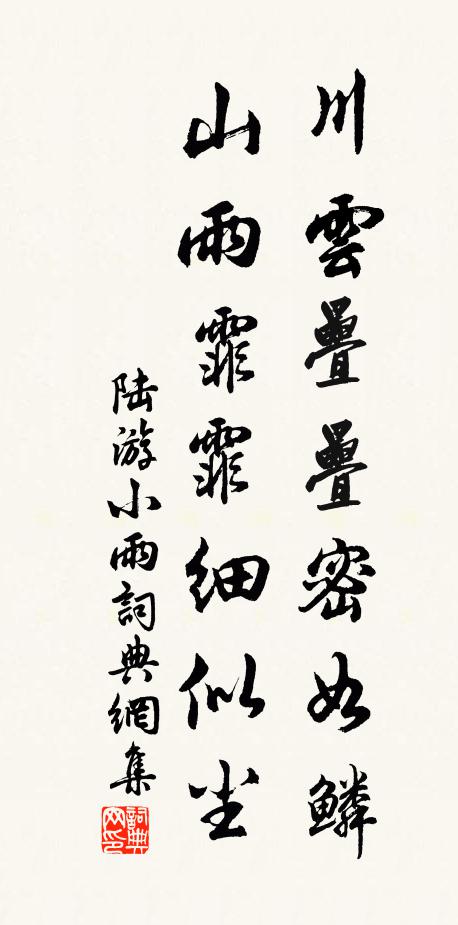 川雲疊疊密如鱗
山雨霏霏細似尘
陆游小雨詞典網集
詞典网印